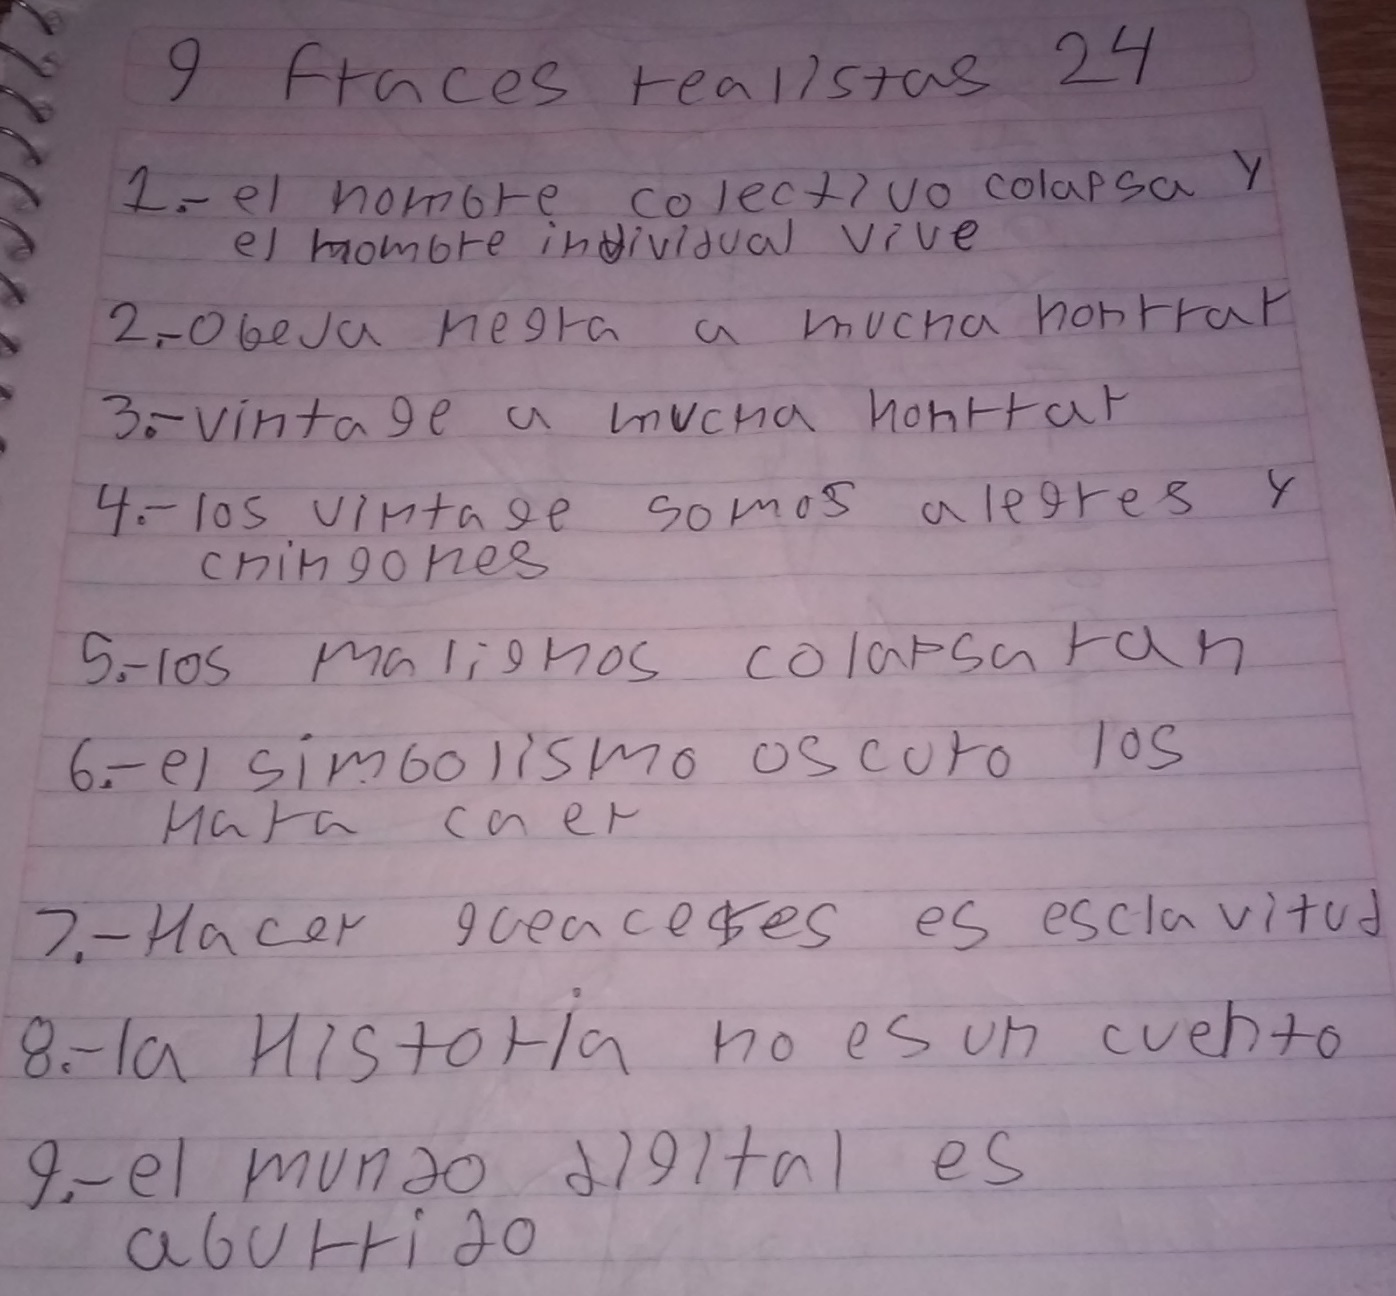 9 fraces realistas 24
1.- el hombre colectivo colapsa y
el hombre individual vive
2.- Obeja negra a mucha honrrar
3.- vintage a mucha honrrar
4.- los vintage somos alegres y
chingones
5.- los malignos colapsaran
6.- el simbolismo oscuro los
Hara caer
7.- Hacer es esclavitud
8.- la Historia no es un cuento
9.- el mundo digital es
aburrido